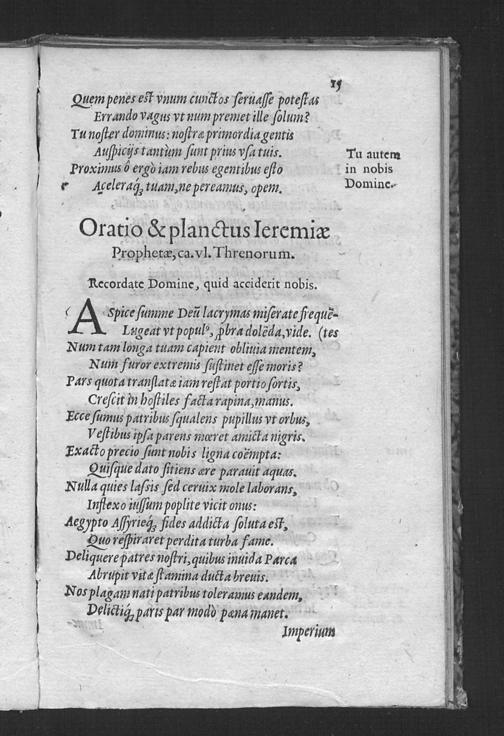 15
Quem penes est vnum cunctos seruasse potestas
Errando vagus vt num premet ille solum?
Tu noster dominus: nostræ primordia gentis
Auspicijs tantùm sunt prius vsa tuis.
Proximus ô ergò iam rebus egentibus esto
Aceleraq́;, tuam, ne pereamus, opem.
Tu autem
in nobis
Domine.
Oratio & planctus Ieremiæ
Prophetæ, ca. vl. Threnorum.
Recordate Domine, quid acciderit nobis.
ASpice summe Deũ lacrymas miserate sequẽ-
Lugeat vt populꝰ, ꝓbra dolẽda, vide. (tes
Num tam longa tuam capient obliuia mentem,
Num furor extremis sustinet esse moris?
Pars quota translatæ iam restat portio sortis,
Crescit in hostiles facta rapina, manus.
Ecce sumus patribus squalens pupillus vt orbus,
Vestibus ipsa parens mœret amicta nigris.
Exacto precio sunt nobis ligna coëmpta:
Quisque dato sitiens ære parauit aquas.
Nulla quies lassis sed ceruix mole laborans,
Inflexo iussum poplite vicit onus:
Aegypto Assyrieq́; fides addicta soluta est,
Quo respiraret perdita turba fame.
Deliquere patres nostri, quibus inuida Parca
Abrupit vitæ stamina ducta breuis.
Nos plagam nati patribus toleramus eandem,
Delictiq́; paris par modò pæna manet.
Imperium